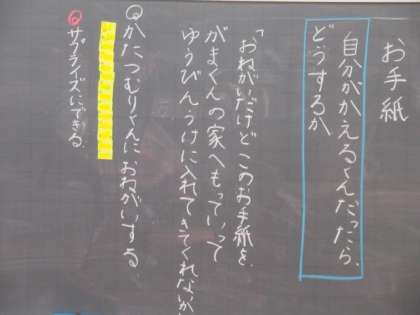 お手紙
自分がかえるくんだったら、
どうするか
「おねがいだけどこのお手紙を、
がまくんの家へもっていって
ゆうびんうけに入れてきてくれないかい
かたつむりくんにおねがいする。
サプライズにできる